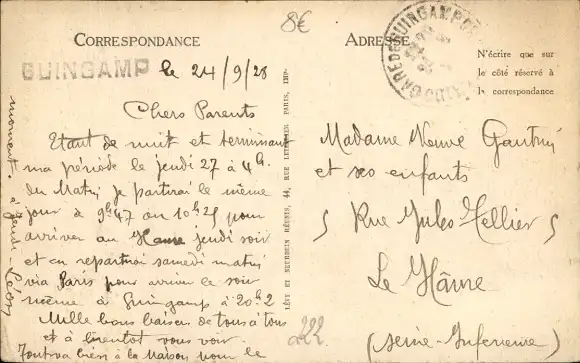 8€
CORRESPONDANCE
ADRESSE
GUINGAMP le 24/9/28
N'écrire que sur
le côté réservé à
la correspondance
Chers Parents
Etant de nuit et terminant
ma période le jeudi 27 à 4h.
du Matin je partirai le même
jour de 9h47 ou 10h25 pour
arriver au Havre jeudi soir
et en repartirai samedi matin
via Paris pour arriver le soir
même à Guingamp à 20h2
Mille bons baisers de tous à tous
et à bientôt vous voir
Tout va bien à la Maison pour le
moment à jeudi - Léon
LÉVY ET NEURDEIN RÉUNIS, 44, RUE LETELLIER PARIS, IMP.
Madame Veuve
et ses enfants
5 Rue Jules Tellier 5
Le Hâvre
(Seine-Inférieure)
222
GARE DE GUINGAMP